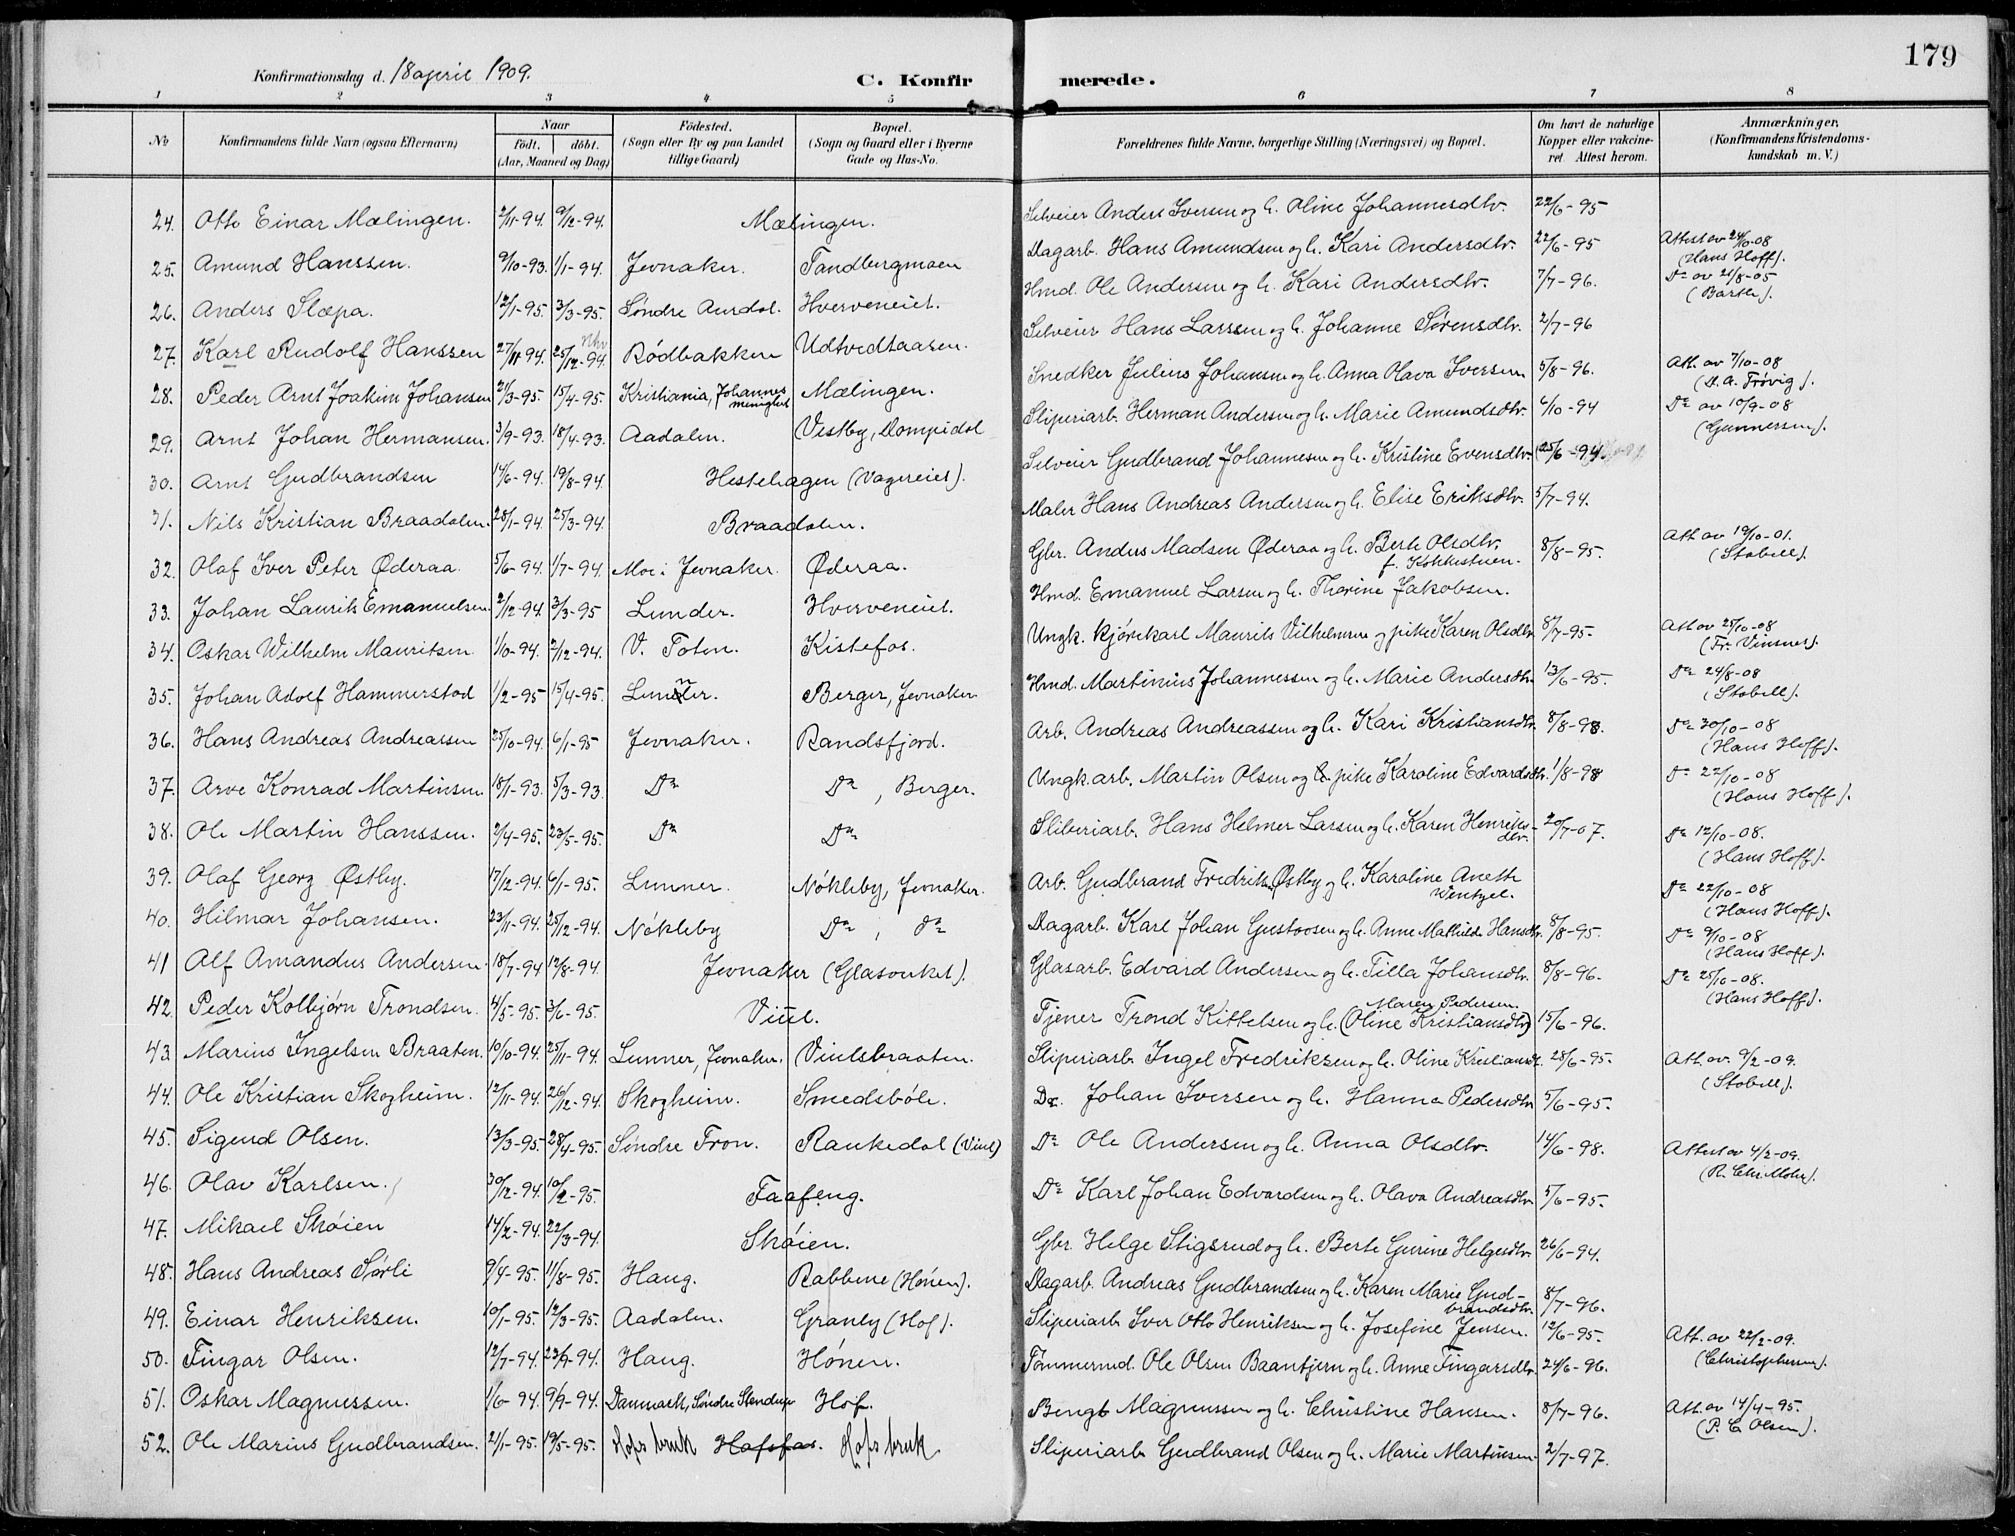 179
Konfirmationsdag d. 18 april 1909.
C. Konfirmerede.
1 2 3 4 5 6 7 8
No
Konfirmandens fulde Navn (ogsaa Efternavn)
Naar
født. døbt.
(Aar, Maaned og Dag)
Fødested.
(Sogn eller By og paa Landet
tillige Gaard)
Bopæl.
(Sogn og Gaard eller i Byerne
Gade og Hus-No.
Forældrenes fulde Navne, borgerlige Stilling (Næringsvei) og Bopæl.
Om havt de naturlige
Kopper eller vakcine-
ret Attest herom.
Anmærkninger.
(Konfirmandens Kristendoms-
kundskab m. V.)
24. Otto Einar Mælingen. 2/11-94. 9/12-94. Mælingen. Selveier Anders Iversen og h. Oline Johannesdtr. 22/6-95
25. Amund Hanssen. 9/10-93. 1/1-94. Jevnaker. Tandbergmoen Dagarb. Hans Amundsen og h. Kari Andersdtr. 22/6-95 Attest av 24/10-08
(Hans Hoff).
26. Anders Slæpa. 12/1-95. 3/3-95. Søndre Aurdal. Hverveneiet. Hmd. Ole Andersen og h. Kari Andersdtr. 7/7-96. Do av 21/8-05
(Barth).
27. Karl Rudolf Hanssen 27/11-94. 25/12-94. Rødbakken Udtvedtaasen. Selveier Hans Larssen og h. Johanne Sørensdtr. 2/7-96
28. Peder Arnt Joakim Johansen 21/3-95. 15/4-95. Kristiania, Johannes
menighet Mælingen. Snedker Julius Johansen og h. Anna Olava Iversen 5/8-96. Att. av 7/10-08
(D. A. Frøvig).
29. Arnt Johan Hermansen. 3/9-93. 18/4-93. Aadalen. Vestby, Dompidal Sliperiarb. Herman Andersen og h. Marie Amundsdtr. 6/10-94 Do av 10/9-08
(Gunnersen).
30. Arnt Gudbrandsen 14/6-94. 19/8-94. Hestehagen (Vagereiet). Selveier Gudbrand Johannesen og h. Kristine Evensdtr. 25/6-94
31. Nils Kristian Braadalen. 28/1-94. 25/3-94. Braadalen. Maler Hans Andreas Andersen og h. Elise Eriksdtr. 5/7-94.
32. Olaf Iver Peter Øderaa. 5/6-94. 1/7-94. Moe i Jevnaker. Øderaa. Gbr. Anders Madsen Øderaa og h. Berte Olsdtr.
f. Kokkestuen. 8/8-95. Att av 19/10-01.
(Stabell).
33. Johan Laurits Emanuelsen. 2/12-94. 3/3-95 Lunder. Hverveneiet. Hmd. Emanuel Larsen og h. Thorine Jakobsen.
34. Oskar Wilhelm Mauritsen. 1/10-94. 2/12-94. V. Toten. Kistefos. Ungk. kjørekarl Maurits Vilhelmsen og pike Karen Olsdtr. 8/7-95. Att av 25/10-08
(Fr. Vinsnes).
35. Johan Adolf Hammerstad 1/2-95 15/4-95. Lunner. Berger, Jevnaker Hmd. Martinius Johannessen og h. Marie Andersdtr. 13/6-95. Do 24/8-08
(Stabell).
36. Hans Andreas Andreassen 25/10-94. 6/1-95 Jevnaker. Randsfjord. Arb. Andreas Andreassen og h. Kari Kristiansdtr. 8/8-98. Do 30/10-08
(Hans Hoff).
37. Arve Konrad Martinsen. 18/1-93. 5/3-93. Do Do, Berger. Ungk.arb. Martin Olsen og pike Karoline Edvardsdtr. 1/8-98 Do 22/10-08
(Hans Hoff).
38. Ole Martin Hanssen. 2/4-95. 23/5-95. Do Do Sliberiarb. Hans Helmer Larsen og h. Karen Henriks-
dtr. 20/7-07. Do 12/10-08.
(Hans Hoff).
39. Olaf Georg Østby. 17/12-94. 6/1-95. Lunner. Nøkleby, Jevnaker. Arb. Gudbrand Fredriksen Østby og h. Karoline Aneth
Wentzel. Do 22/10-08
(Hans Hoff).
40. Hilmar Johansen. 23/11-94. 25/12-94. Nøkleby Do, do Dagarb. Karl Johan Gustavsen og h. Anne Mathilde Hansdtr. 8/8-95. Do 9/10-08
(Hans Hoff).
41 Alf Amandus Andersen. 18/7-94 12/8-94. Jevnaker (Glasverket). Glasarb. Edvard Andersen og h. Tilla Johansdtr. 8/8-96. Do 25/10-08.
(Hans Hoff).
42. Peder Kolbjørn Trondsen. 4/5-95. 3/6-95. Viul. Tjener Trond Kittelsen og h. Maren Pedersen.
(Oline Kristiansdtr) 15/6-96.
43. Marius Ingelsen Braaten. 10/10-94. 25/11-94. Lunner, Jevnaker. Viulsbraaten. Sliperiarb. Ingel Fredriksen og h. Oline Kristiansdt. 28/6-95. Att. av. 9/2-09.
(Stabell).
44. Ole Kristian Skogheim. 12/11-94. 26/12-94. Skogheim. Smedsbøle. Do. Johan Iversen og h. Hanna Pedersdtr. 5/6-95.
45. Sigurd Olsen. 13/3-95. 28/4-95. Søndre Fron. Rankedal (Viul) Do Ole Andersen og h. Anna Olsdtr. 14/6-98. Attest av 4/2-09.
(R. Chr. Mohr).
46. Olav Karlsen. 30/12-94. 10/2-95. Faafeng. Do Karl Johan Edvardsen og h. Olava Andreasdtr. 5/6-95.
47. Mikael Skøien 14/2-94. 22/3-94. Skøien. Gbr. Helge Stigsrud og h. Berte Gurine Helgesdtr. 26/6-94.
48. Hans Andreas Sørli 9/4-95. 11/8-95. Haug. Rabbene (Hønen). Dagarb. Andreas Gudbrandsen og h. Karen Marie Gud-
brandsdtr. 8/7-96.
49. Einar Henriksen. 10/1-95. 12/3-95. Aadalen. Granly (Hof). Sliperiarb Iver Otto Henriksen og h. Josefine Jensen. 12/6-95.
50. Fingar Olsen. 12/7-94. 23/9-94. Haug. Hønen. Tømmermd. Ole Olsen Baantjern og h. Anne Fingarsdtr. 24/6-96. Att. av 22/2-09.
(Christophersen).
51. Oskar Magnussen. 1/6-94. 9/9-94. Danmark, Søndre Stenderup Hof. Bengt Magnussen og h. Christine Hansen. 8/7-96. Att. av 14/4-95.
(P. C. Olsen).
52. Ole Marius Gudbrandsen. 21/1-95. 19/5-95. Hofs bruk Hofsfos. Hofs bruk Sliperiarb. Gudbrand Olsen og h. Marie Martinsen. 2/7-97.